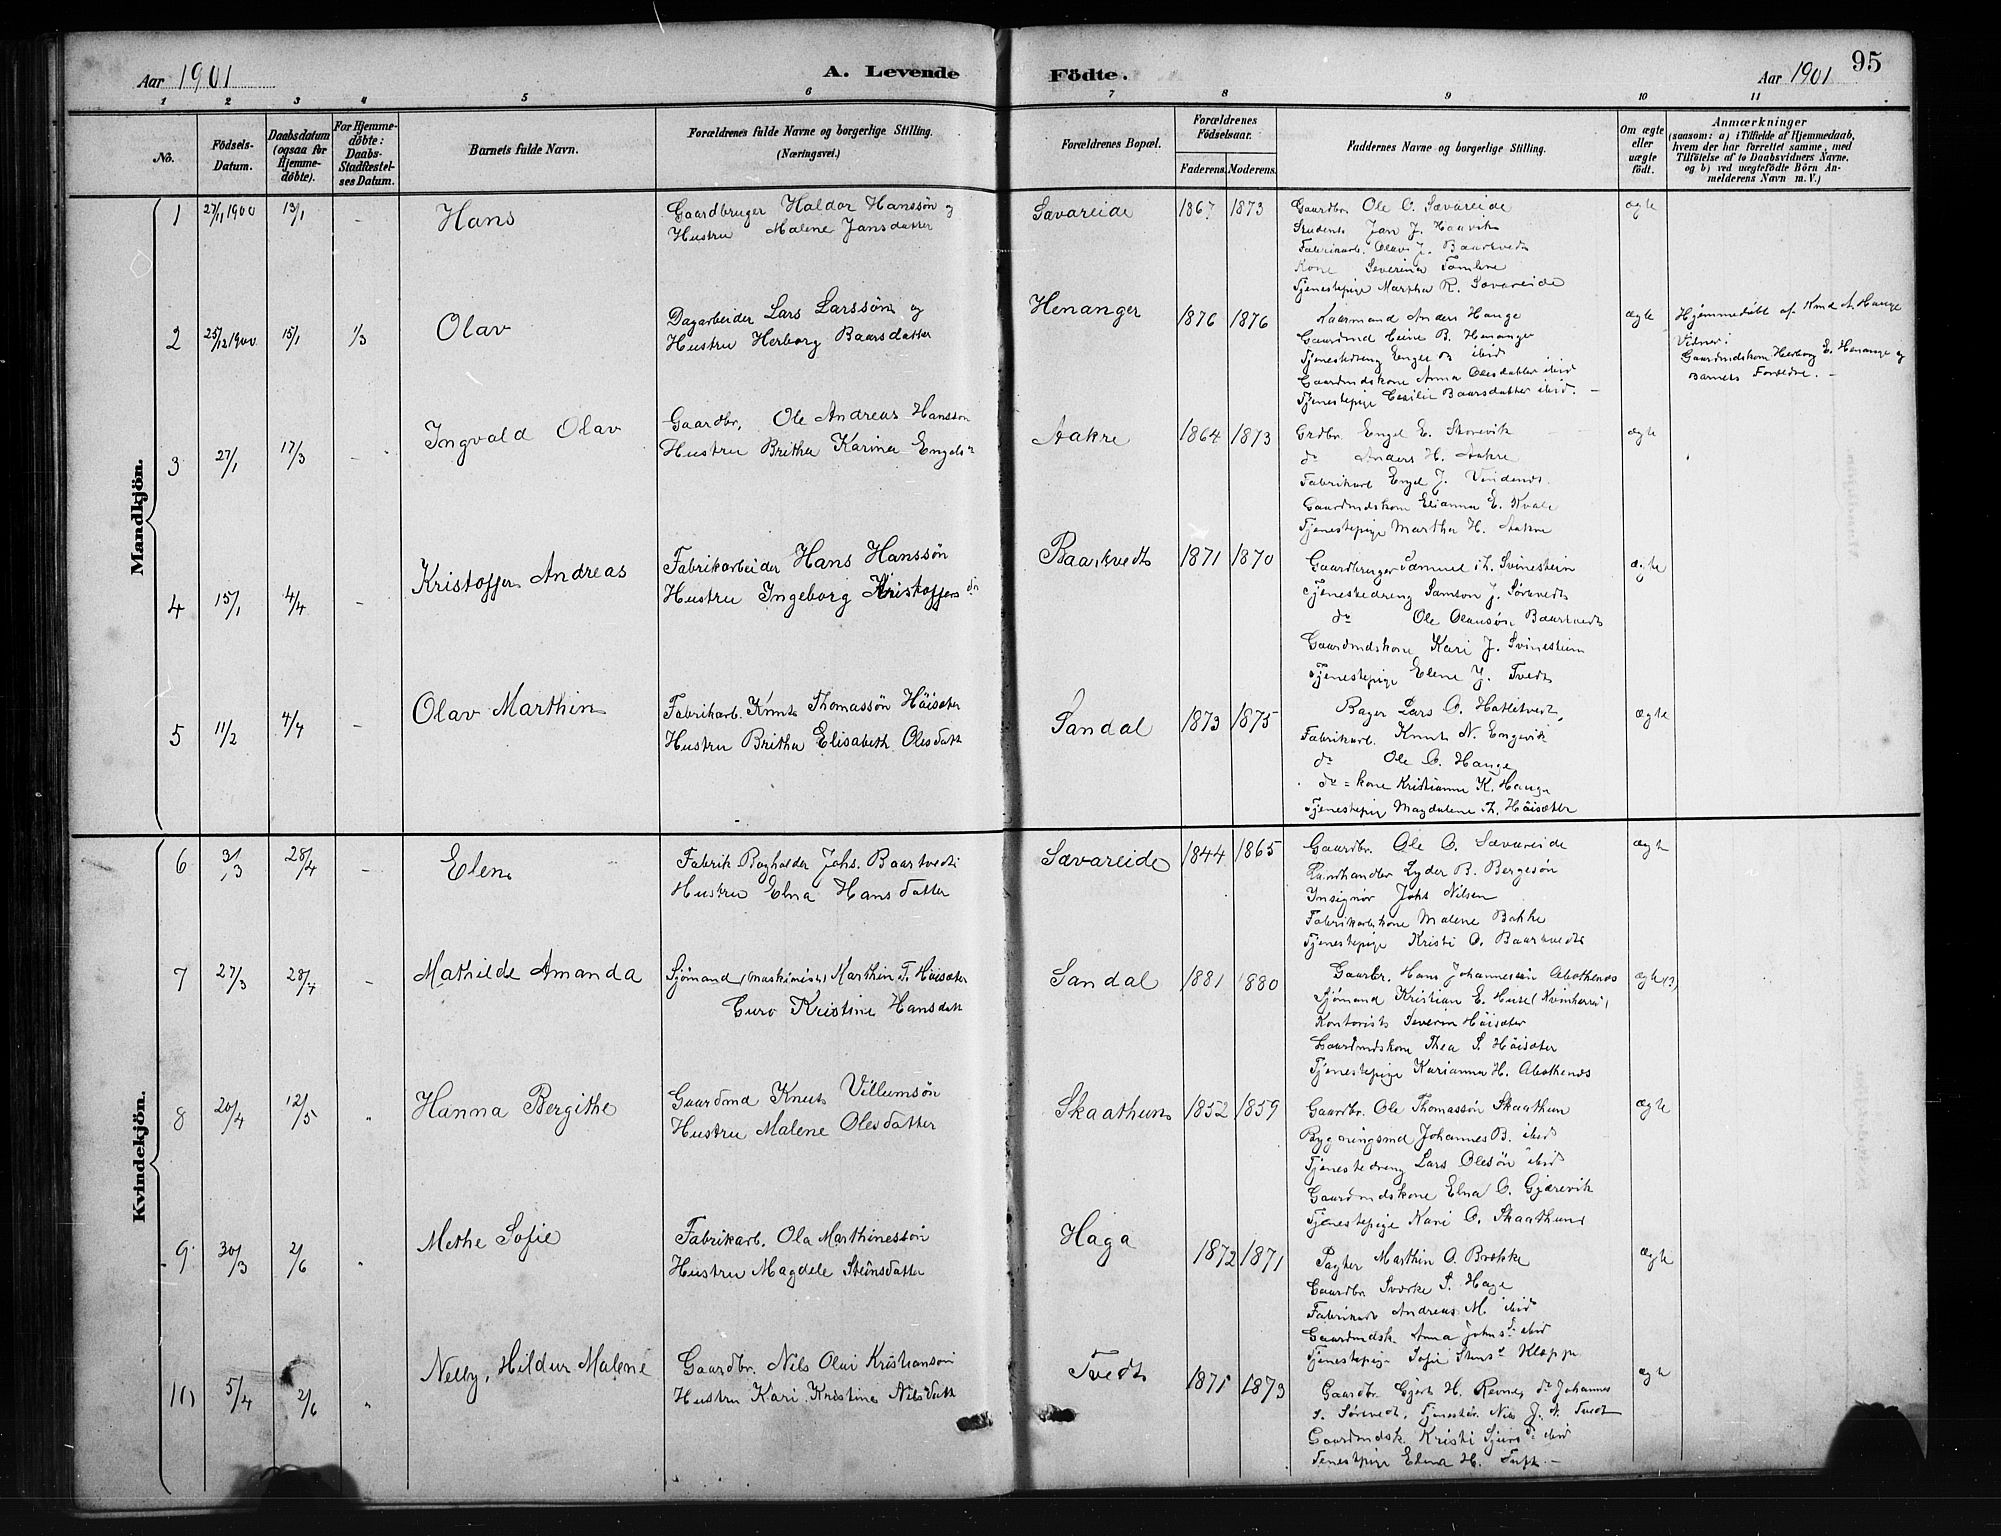 Aar 1901
A. Levende Födte.
Aar 1901
95
1 2 3 4 5 6 7 8 9 10 11
No.
Födsels-Datum.
Daabsdatum (ogsaa for Hjemme-döbte).
For Hjemme-döbte: Daabs-Stadfæstel-ses Datum.
Barnets fulde Navn.
Forældrenes fulde Navne og borgerlige Stilling. (Næringsvei.)
Forældrenes Bopæl.
Forældrenes Födselsaar.
Faderens. Moderens.
Faddernes Navne og borgerlige Stilling.
Om ægte eller uægte födt.
Anmærkninger
(saasom: a) i Tilfælde af Hjemmedaab, hvem der har forrettet samme, med Tilföielse af to Daabsvidners Navne, og b) ved uægtefödte Börn Anmelderens Navn m. V.)
Mandkjön.
1 27/11 1900 13/1 - Hans
Gaardbruger Haldor Hanssøn og
Hustru Malene Jansdatter
Sævareide 1867 1873
Gaardbr. Ole O. Sævareide
Student Jan J. Haavik
Fabrikarb. Olav J. Baartvedt
Kone Severina Tomline
Tjenestepige Martha R. Sævareide
ægte
2 25/12 1900 15/1 1/3 Olav
Dagarbeider Lars Larssøn og
Hustru Herborg Baarsdatter
Henanger 1876 1876
Kaarmand Anders Hauge
Gaardmd Heine B. Henanger
Tjenestedreng Engel B ibid
Gaardmdskone Anna Olesdatter ibid
Tjenestepige Cecilie Baarsdatter ibid. -
ægte
Hjemmedøbt af Kmd A. Hauge
Vidner:
Gaardmdskone Herborg E. Henange og
Barnets Forældre. -
3 27/1 17/3 - Ingvald Olav
Gaardbr, Ole Andreas Hanssøn
Hustru Britha Karina Engelsdr
Aakre 1864 1873
Grdbr. Engel E. Storevik
do Anders H. Aakre
Fabrikarb Engel J. Vindenes.
Gaardmdskone Elianna E. Kvale
Tjenestepige Martha H. Aakre
ægte
4 15/1 4/4 - Kristoffer Andreas
Fabrikarbeider Hans Hanssøn
Hustru Ingeborg Kristoffersdr
Baartvedt 1871 1870
Gaardbruger Samuel Th. Svinesheim
Tjenestedreng Samson J. Sørtvedt
do Ole Olaussøn Baartvedt
Gaardmdskone Kari J. Svinesheim
Tjenestepige Elene J. Tvedt
ægte
5 11/2 4/4 - Olav Marthin
Fabrikarb. Knut Thomassøn Höisæter
Hustru Britha Elisabeth Olesdatt
Sandal 1873 1875
Bager Lars O. Hatletvedt,
Fabrikarb. Knut N. Engevik
do Ole O. Hauge
do = kone Kristianna K. Hauge
Tjenestepige Magdalene Th. Höisæter
ægte
Kvindekjön.
6 31/3 28/4 - Elen
Fabrik Bogholder Johs. Baartvedt
Hustru Elna Hansdatter
Sævareide 1844 1865
Gaardbr. Ole O. Sævareide
Landhandler Lyder B. Bergesøn
Insignør Johs Nilsen
Fabrikarbkone Malene Bakke
Tjenestepige Kristi O. Baartvedt
ægte
7 27/3 28/4 - Mathilde Amanda
Sjømand (Maskinist) Marthin T. Höisæter
Guro Kristine Hansdatt
Sandal 1881 1880
Gaarbr. Hans Johannessøn Abothenes
Sjømand Kristian E. Huse (Kvinherred)
Kontorist Severin Höisæter
Gaardmdskone Thea S. Höisæter
Tjenestepige Karianna H. Abothenes
ægte
8 20/4 12/5 - Hanna Bergithe
Gaardmd Knut Villumsøn
Hustru Malene Olesdatter
Skaathun 1852 1859
Gaardbr. Ole Thomassøn Skaathun
Bygningsmd Johannes B. ibid
Tjenestedreng Lars Olesøn ibid
Gaardmdskone Elna O. Gjærevik
Tjenestepige Kari O. Skaathun
ægte
9 30/3 2/6 - Methe Sofie
Fabrikarb. Ola Marthinessøn
Hustru Magdele Steinsdatter
Haga 1872 1871
Pagter Marthin O. Brekke
Gaardbr. Sverke S. Hage
Fabrikarb Andreas M ibid
Gaardmdsk. Anna Johnsdr ibid
Tjenestepige Sofie Stensdr Kleppe
ægte
10 5/4 2/6 - Nelly, Hildur Malene
Gaardbr. Nils Olai Kristiansøn
Hustru Kari Kristine Nilsdatt
Tvedt 1871 1873
Gaardbr. Gjert H. Revne, do Johannes
S. Sørtvedt, Tjenestedr. Nils J. N. Tvedt
Gaardmdsk. Kristi Sjursdr ibid
Tenestepige Elena H. Tuft -
ægt